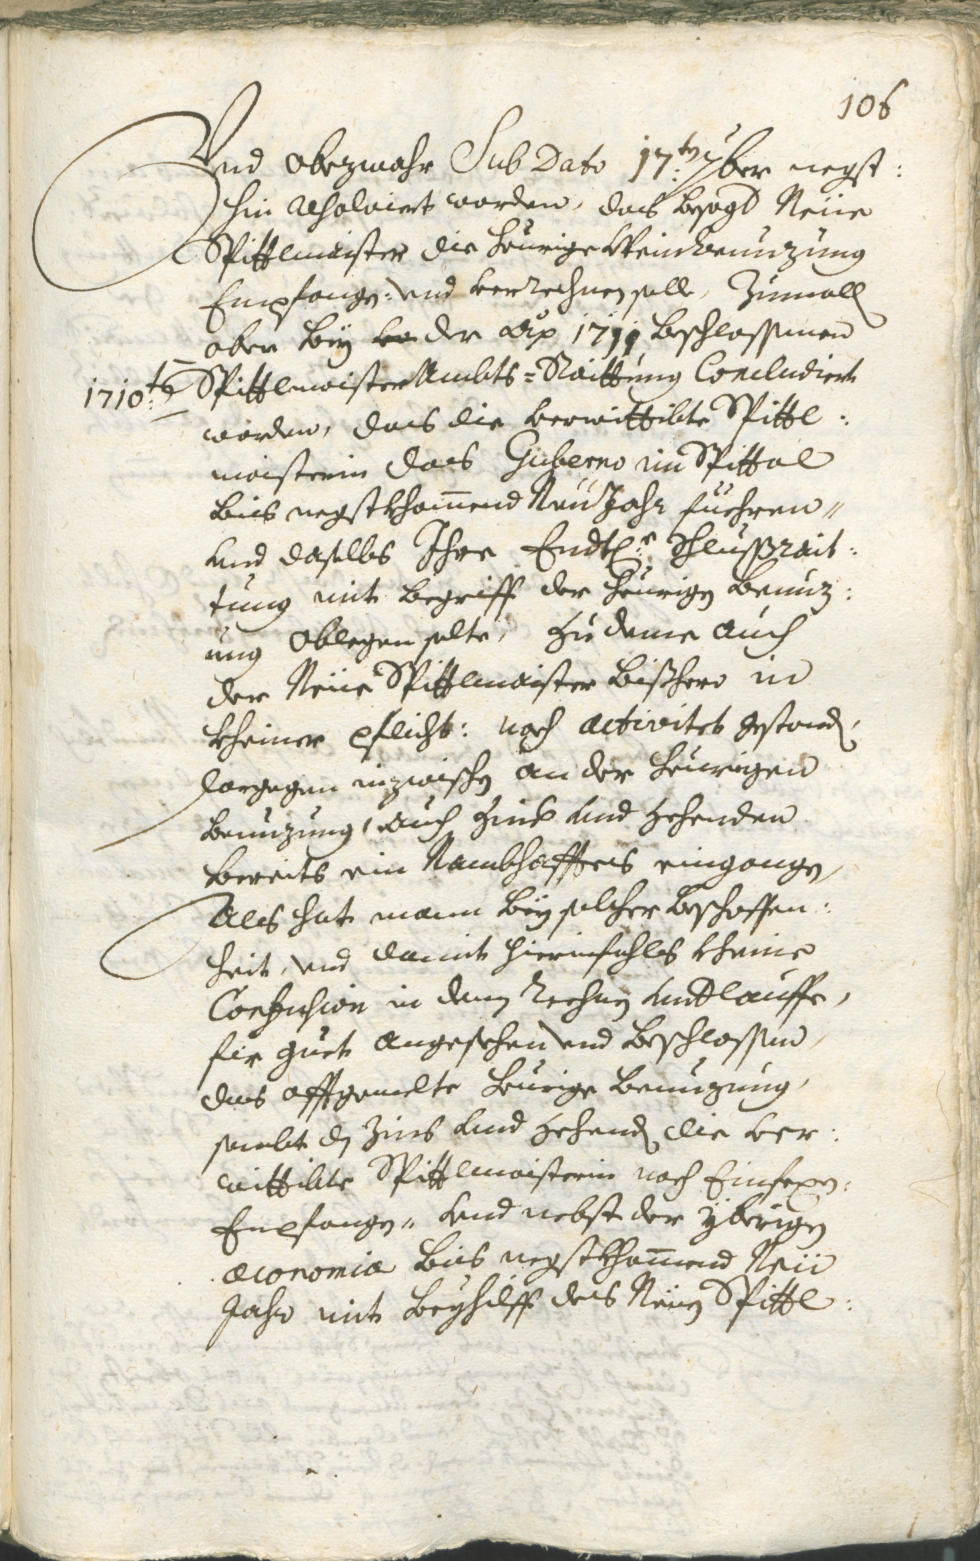 106
Und obezwahr Sub Dato 17:ten 7ber negst:
hin resolviert worden, das besagt Neüe
Spittlmaister die heurige Weinbenuzung
Empfangen: und verrechnen solle, Zumall
aber bey der dis 1711 beschlossenen
1710:te Spittlmaister Ambts=Raittung Concludiert
worden, das die verwittibte Spittl:
maisterin das Guberno im Spittal
bis negstkhommend NeuJahr füehren"
und daselbs Ihre Endtl:e Schlussrait:
tung mit begriff der heurigen benuz:
ung ablegen solte, Zu deme auch
der Neüe Spittlmaister bisshero in
kheiner pflicht: noch activitet gestanden,
dargegen inzwischen an der heurigen
benuzung, auch Zins und zehenden
bereits ein Nambhafftes eingangen,
Als hat mann bey solcher beschaffen:
heit, und damit hierinfahls kheine
Confusion in denen rechnungen undlauffe,
für guet angesehen und beschlossen,
das offtgemelte heurige benuzung,
sambt den Zins und zehend die ver:
wittibte Spittlmaisterin noch Einsexen:
Empfangen" und nebst der yberigen
æconomia bis negstkhommend Neü
Jahr mit beyhilff des Neüen Spittl: